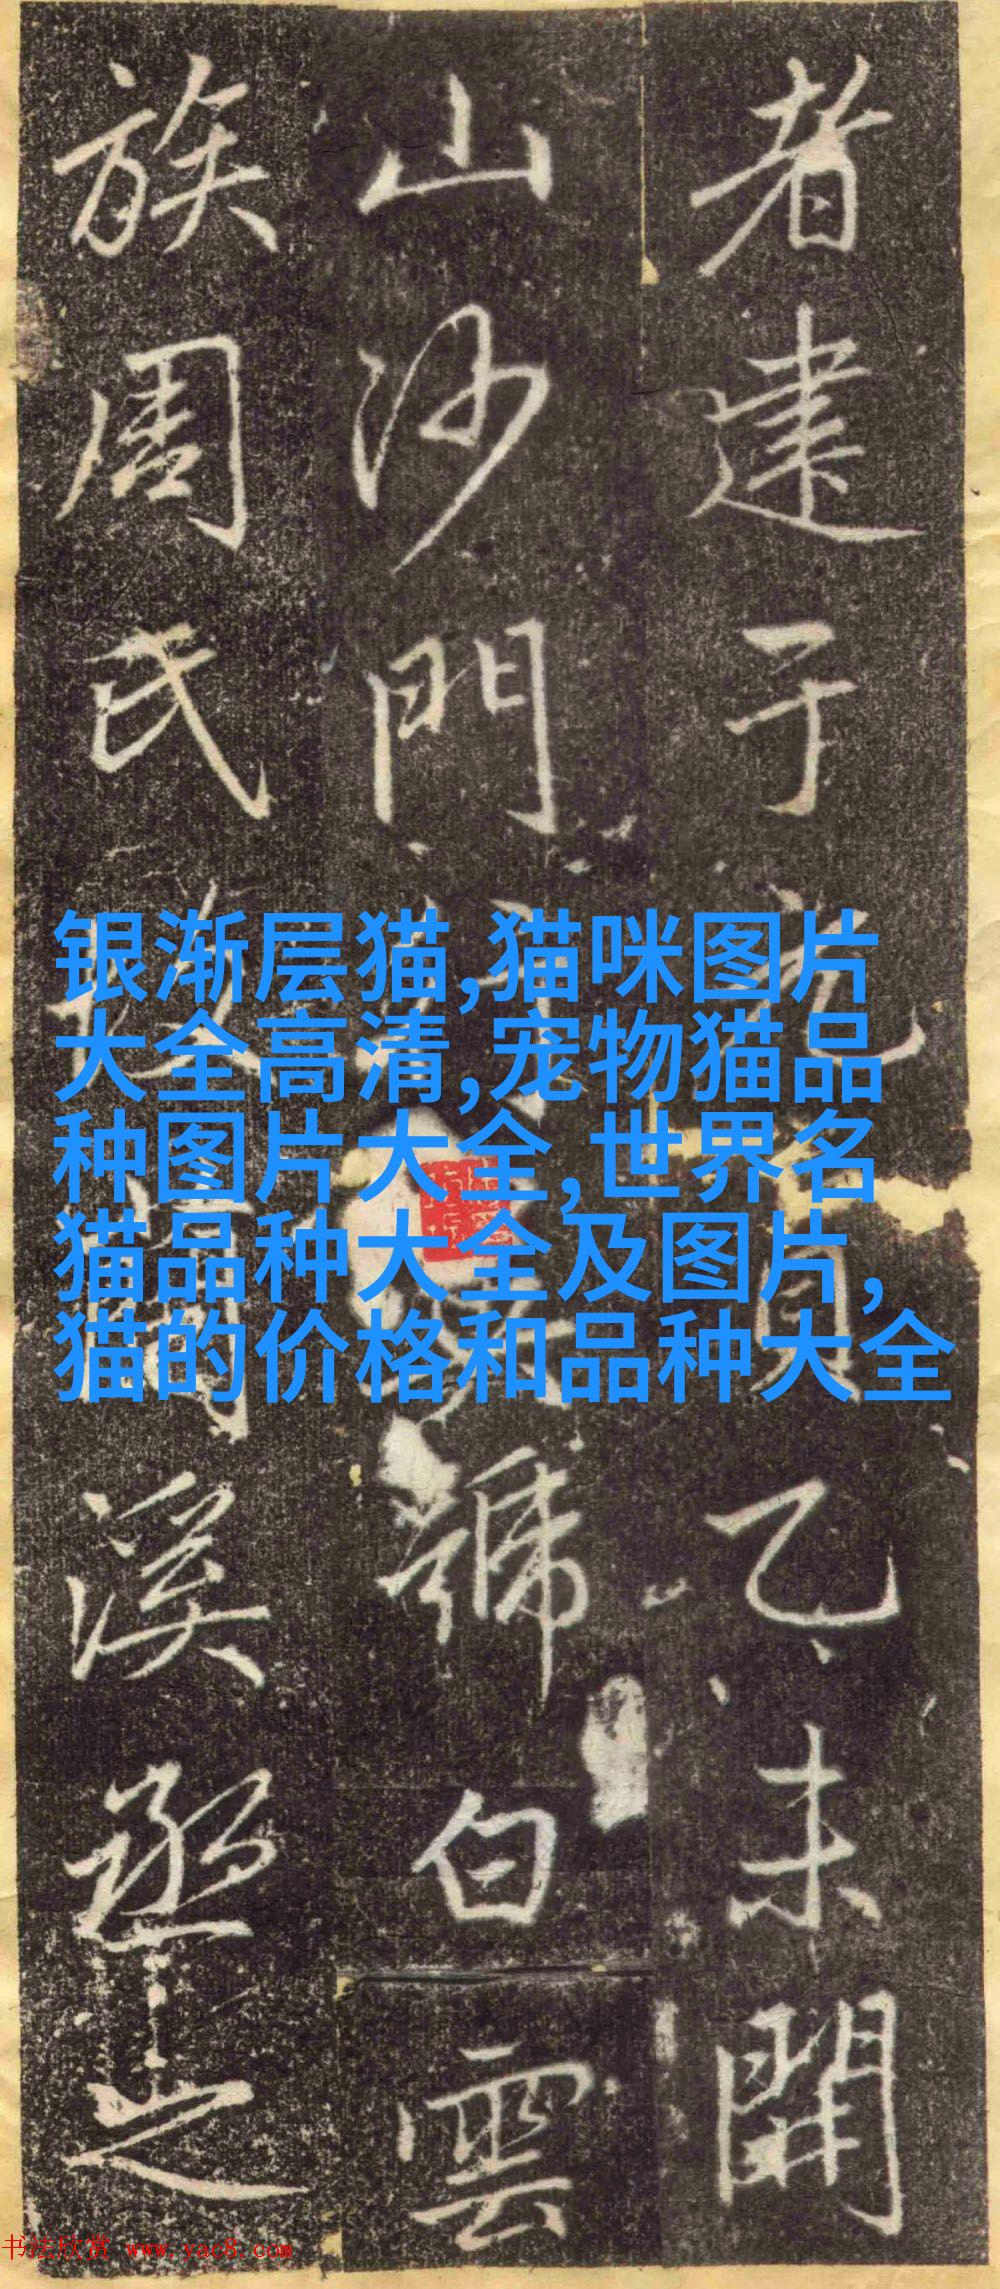 者建于元貞乙未開
山沙門
號白雲
族周氏
溪丞之
银渐层猫,猫咪图片
大全高清,宠物猫品
种图片大全,世界名
猫品种大全及图片,
猫的价格和品种大全
书法欣赏 www.yac8.com